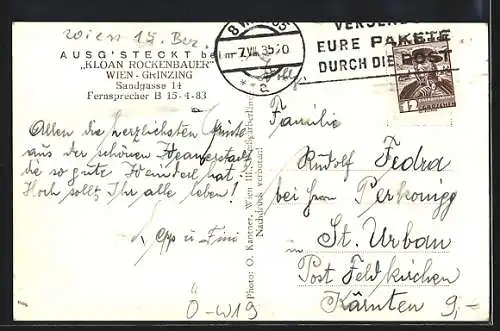 Wien 19. Bez.
AUSG'STECKT beim
„KLOAN ROCKENBAUER"
WIEN-GRINZING
Sandgasse 14
Fernsprecher B 15-4-83
Allen die herzlichsten Grüße
aus der schönen Weanerstadt
die so gute Weinderl hat!
Hoch sollt Ihr alle leben!
Photo: O. Kantner, Wien III,
Nachdruck verboten!
8
-7.VII.35
* a
EURE PAKETE
DURCH DIE POST
12
Familie
Rudolf Fedra
bei Herrn Perkonigg
in St. Urban
Post Feldkirchen
Kärnten
9,-
Ö-W19